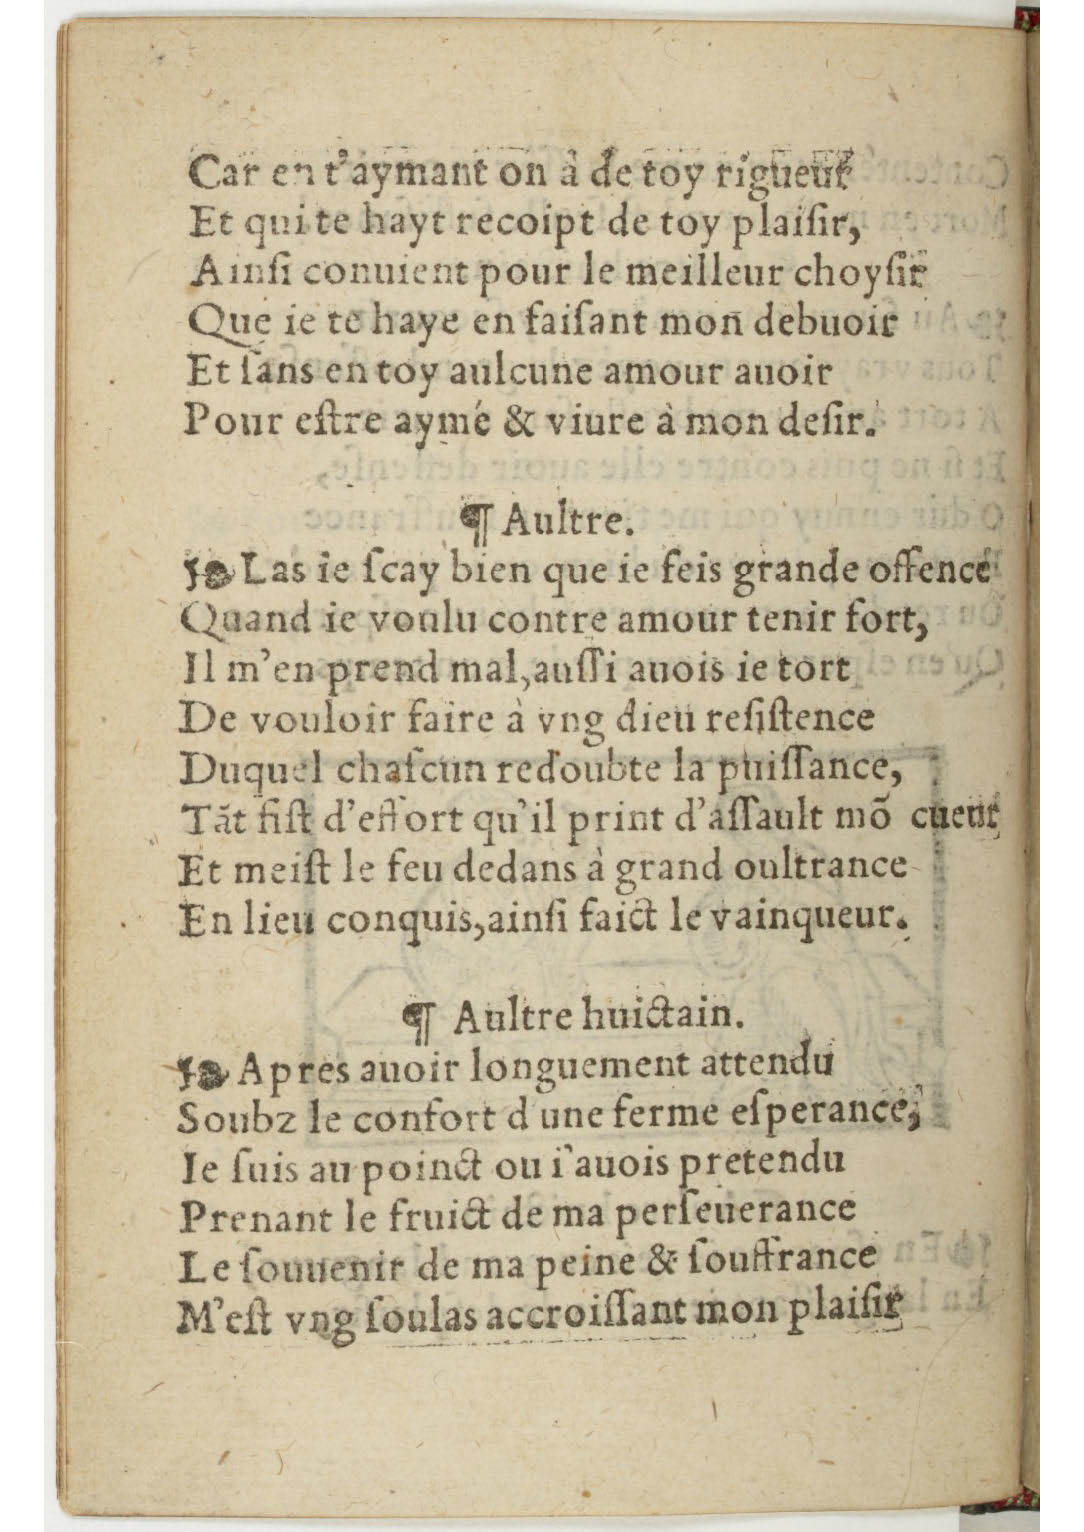 Car en t'aymant on à de toy rigueur
Et qui te hayt recoipt de toy plaiſir,
Ainſi conuient pour le meilleur choyſir
Que ie te haye en faiſant mon debuoir
Et ſans en toy aulcune amour auoir
Pour eſtre aymé & viure à mon deſir.
¶ Aultre.
❧ Las ie ſcay bien que ie feis grande offence
Quand ie voulu contre amour tenir fort,
Il m'en prend mal,auſſi auois ie tort
De vouloir faire à vng dieu reſiſtence
Duquel chaſcun redoubte la puiſſance,
Tāt fiſt d'effort qu'il print d'aſſault mõ cueur
Et meiſt le feu dedans à grand oultrance
En lieu conquis,ainſi faict le vainqueur.
¶ Aultre huictain.
❧ Apres auoir longuement attendu
Soubz le confort d'une ferme eſperance,
Ie ſuis au poinct ou i'auois pretendu
Prenant le fruict de ma perſeuerance
Le ſouuenir de ma peine & ſouffrance
M'eſt vng ſoulas accroiſſant mon plaiſir